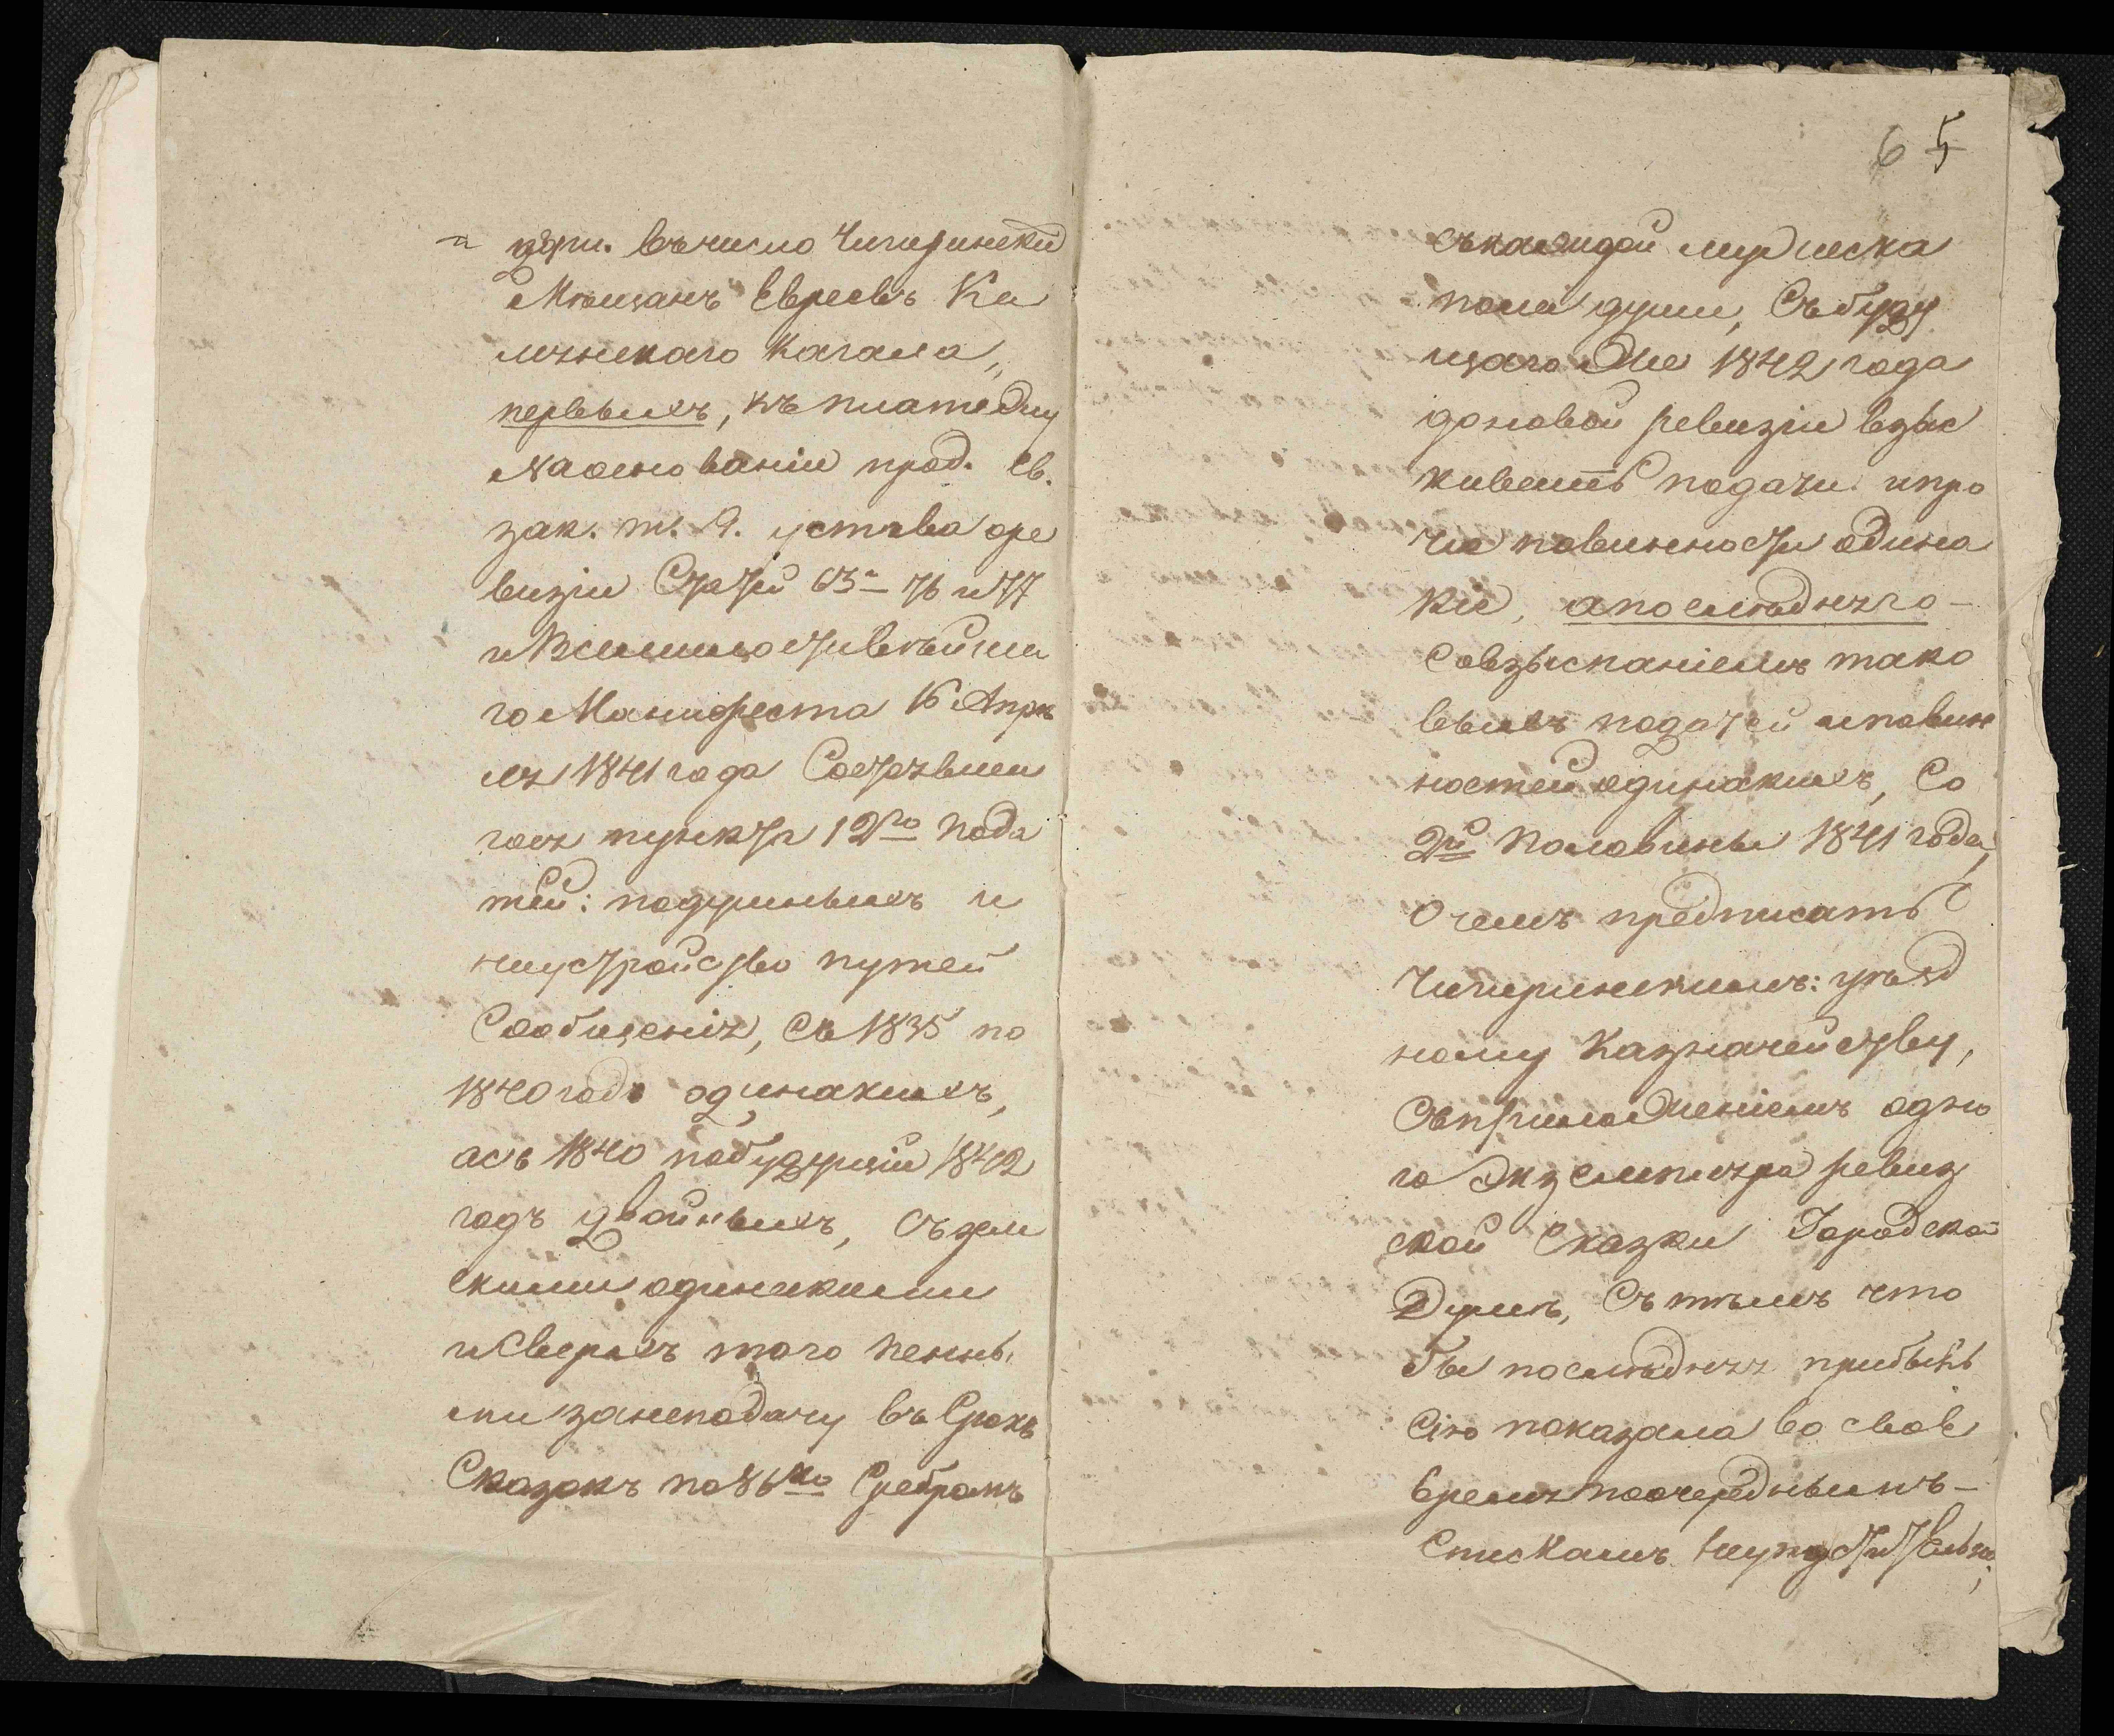 души. въ число Чигиринскихъ
Мѣщанъ Евреевъ Ка
менскаго Кагала,
первыхъ, къ платежу
на основаніи прод. Св.
зак. т. 9. устава о ре
визіи Статьи 63 – 76 и 77
и Всемилостивѣйша
го Манифеста 16 Апрѣ
ля 1841 года Состоявша
гося пункта 12го пода
тей: подушныхъ и
на устройство путей
Сообщенія, Съ 1835 по
1840 годъ одинакихъ,
а съ 1840 по будущій 1842
годъ двойныхъ, съ
скими одинакими
и Сверхъ того пенны
ми за неподачу въ Срокъ
Сказокъ по 86 ко Сребромъ
6 5
съ каждой мужеска
пола души, Съ буду
щаго же 1842 года
до новой ревизіи взыс
кивать подати и про
чіе повинности одина
кіе, а последняго –
Со взысканіемъ тако
выхъ податей и повин
ностей одинакихъ, Со
2й половины 1841 года,
О чемъ предписать
Чигиринскимъ: уѣзд
ному Казначейству,
Съ приложеніемъ одно
го Экземпляра ревиз
ской Сказки Городской
Думѣ, Съ тѣмъ что
бы последняя прибыль
Сію показала во своё
время по очереднымъ –
Спискамъ